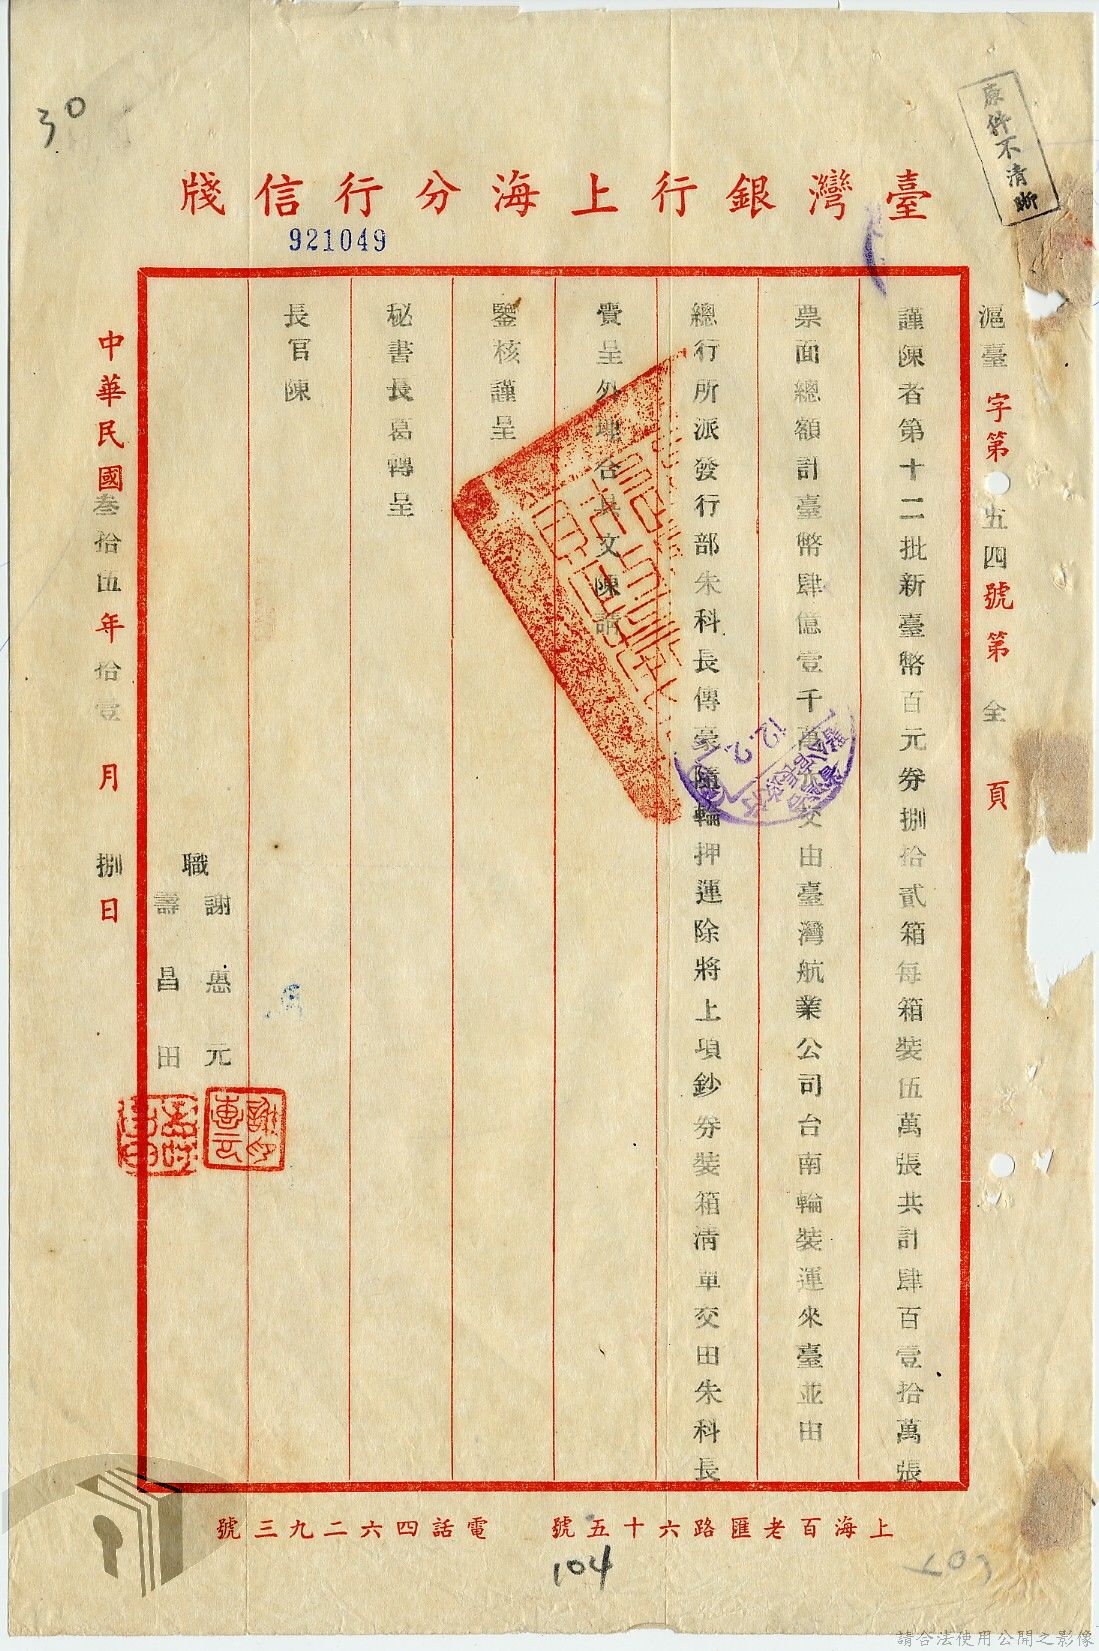 30
原件不清晰
臺灣銀行上海分行信牋
921049
滬臺字第五四號第全頁
謹陳者第十二批新臺幣百元券捌拾貳箱每箱裝伍萬張共計肆百壹拾萬張
票面總額計臺幣肆億壹千萬 交由臺灣航業公司台南輪裝運來臺並由
總行所派發行部朱科長傳豪隨輪押運除將上項鈔券裝箱清單交由朱科長
賫呈外理合具文陳請
鑒核謹呈
秘書長葛轉呈
長官陳
職謝惠元
壽昌田
中華民國叁拾伍年拾壹月捌日
12.2
上海百老匯路六十五號 電話四六二九三號
104
請合法使用公開之影像